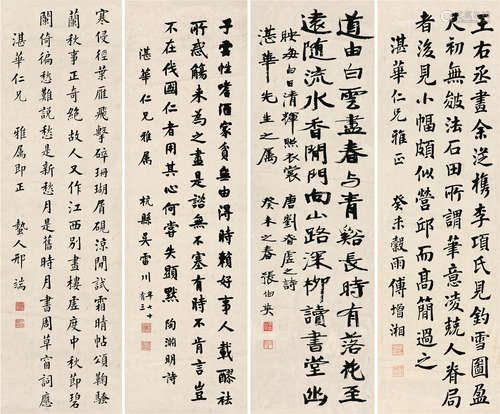 王右丞畫余從檇李項氏見圖
尺初無皴法石田所謂筆意凌兢人脊局
者後見小幅頗似營邱而高簡過之
湛華仁兄雅正 癸未穀雨傅增湘
道由白雲盡春与青谿長時有落花至
遠隨流水香閒門向山路深柳讀書堂幽
映每白日清輝照衣裳 唐劉眘虛之詩
湛華先生之屬 癸未之春 張伯英
子雲性嗜酒家貧無由得時賴好事人載醪祛
所惑觴来為之盡是諮無不塞有時不肯言豈
不在伐國仁者用其心何嘗失顯默 陶淵明詩
湛華仁兄雅属 杭縣吳雷川年七十有三
寒侵徑葉雁飛擊碎珊瑚屑硯涼閒試霜晴帖頌鞠騷
蘭秋事正奇絕故人又作江西別畫樓虛度中秋節碧
闌倚徧愁難說愁是新愁月是舊時月書周草窗詞應
湛華仁兄 雅属即正 蟄人邢端